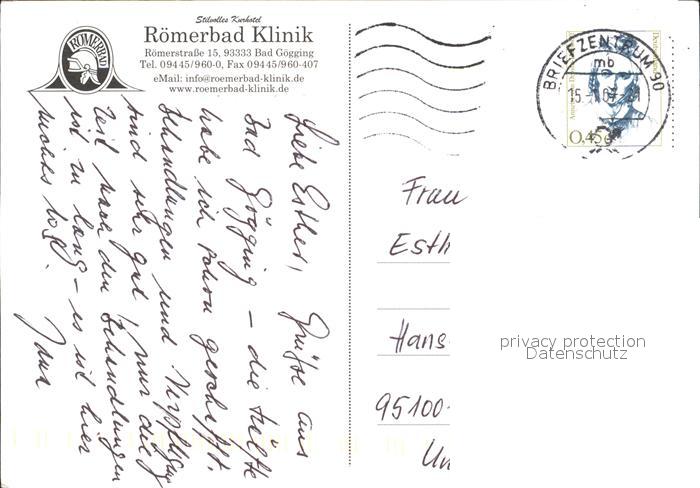 Stilvolles Kurhotel
Römerbad Klinik
Römerstraße 15, 93333 Bad Gögging
Tel. 09445/960-0, Fax 09445/960-407
eMail: info@roemerbad-klinik.de
www.roemerbad-klinik.de
RÖMERBAD
Liebe Esther, Grüße aus
Bad Gögging - die Hälfte
habe ich schon geschafft.
Behandlungen und Verpflegung
sind sehr gut! Nur die
Zeit nach den Behandlungen
ist zu lang - es ist hier
nichts los.
BRIEFZENTRUM 90
mb
0,45
Frau
Esth
Hans
95100
Un
privacy protection
Datenschutz